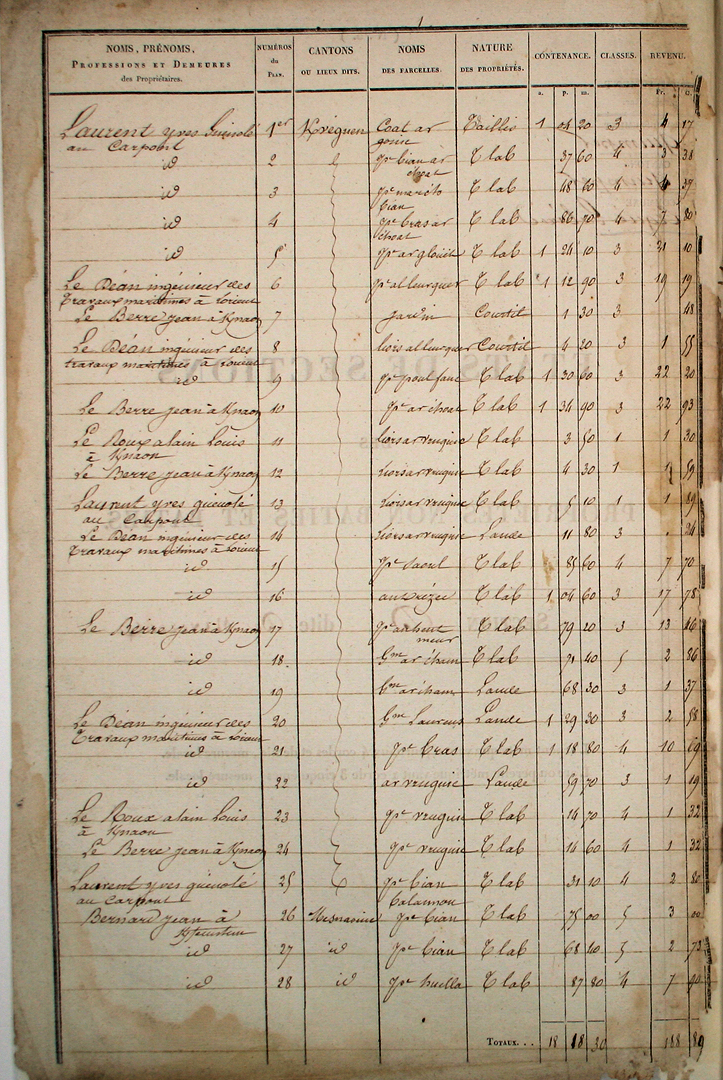 1
NOMS, PRÉNOMS, PROFESSIONS ET DEMEURES des Propriétaires. NUMÉROS du PLAN. CANTONS OU LIEUX DITS. NOMS DES PARCELLES. NATURE DES PROPRIÉTÉS. CONTENANCE. CLASSES. REVENU.
a. p. m. Fr. c.
Laurent yves Guinolé 1er Coat ar Taillis 1 04 20 3 4 17
au Carpont
id 2 pce bian ar T lab 37 60 4 3 38
choat
id 3 T lab 48 60 4 4 37
bian
id 4 pce bras ar T lab 86 70 4 7 80
choat
id 5 T lab 1 24 10 3 21 10
Le Déan ingénieur des 6 T lab 1 12 90 3 19 19
travaux maritimes à Lorient
Le Berre jean à Knaon 7 jardin Courtil 1 30 3 48
Le Déan ingénieur des 8 Courtil 4 20 3 1 55
travaux maritimes à Lorient
id 9 T lab 1 30 60 3 22 20
Le Berre jean à Knaon 10 pce ar choat T lab 1 34 90 3 22 93
Le Roux alain Louis 11 liorsar veuguic T lab 3 50 1 1 30
à Knaon
Le Berre jean à Knaon 12 liorsar veuguic T lab 4 30 1 1 59
Laurent yves guénolé 13 liorsar veuguic 5 10 1 1 89
au Carpont
Le Déan ingénieur des 14 liorsar veuguic Lande 11 80 3 . 24
travaux maritimes à Lorient
id 15 T lab 85 60 4 7 70
id 16 T lab 1 04 60 3 17 78
Le Berre jean à Knaon 17 T lab 79 20 3 13 46
meur
id 18 Gm ar cham T lab 71 40 5 2 86
id 19 Gm ar cham Lande 68 30 3 1 37
Le Déan ingénieur des 20 Gm Laurens Lande 1 29 30 3 2 58
travaux maritimes à Lorient
id 21 pce bras T lab 1 18 80 4 10 69
id 22 ar veuguic Lande 59 70 3 1 19
Le Roux alain Louis 23 pce veuguic T lab 14 70 4 1 32
à Knaon
Le Berre jean à Knaon 24 pce veuguic T lab 14 60 4 1 32
Laurent yves guénolé 25 pce bian T lab 31 10 4 2 80
au Carpont
Bernard jean à 26 pce bian T lab 75 00 5 3 00
id 27 id pce bian T lab 68 10 5 2 72
id 28 id pce huella T lab 87 80 4 7 90
TOTAUX. . . 18 18 30 188 89